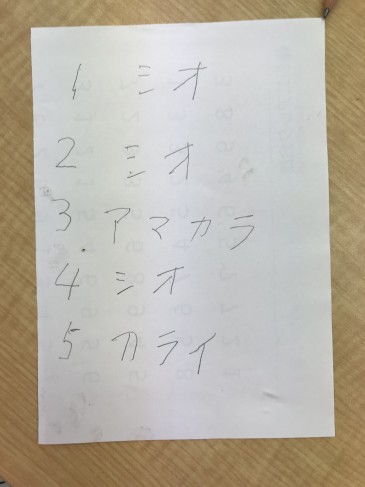 1 シオ
2 シオ
3 アマカラ
4 シオ
5 カライ